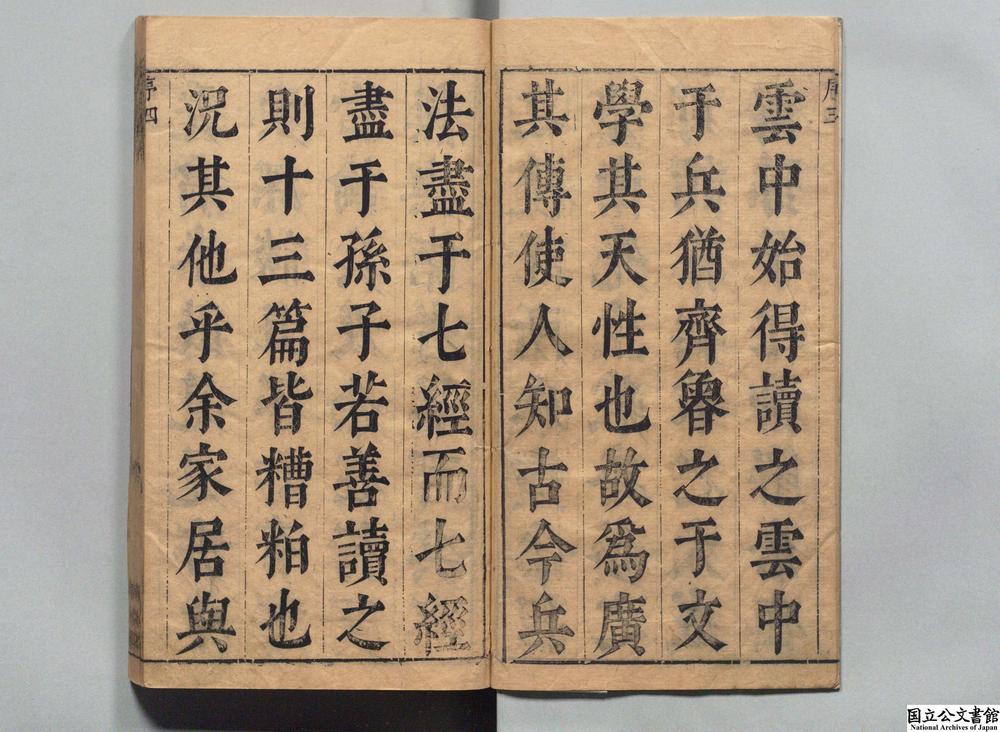 序三
雲中始得讀之雲中
于兵猶齊魯之于文
學其天性也故爲廣
其傳使人知古今兵
法盡于七經而七經
盡于孫子若善讀之
則十三篇皆糟粕也
況其他乎余家居與
序四
国立公文書館
National Archives of Japan